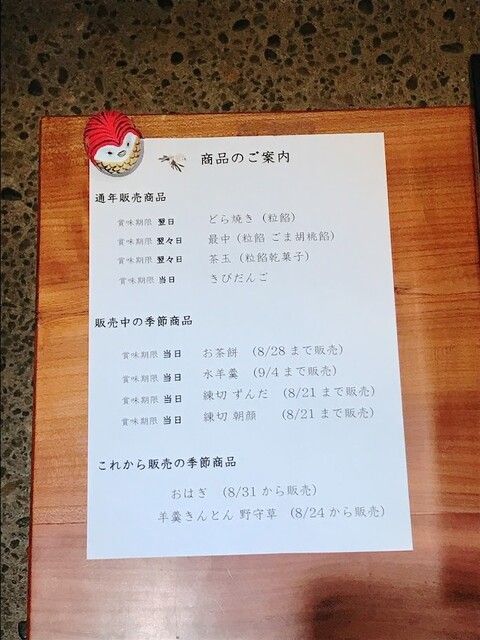 商品のご案内
通年販売商品
賞味期限 翌日 どら焼き (粒餡)
賞味期限 翌々日 最中 (粒餡 ごま胡桃餡)
賞味期限 翌々日 茶玉 (粒餡乾菓子)
賞味期限 当日 きびだんご
販売中の季節商品
賞味期限 当日 お茶餅 (8/28 まで販売)
賞味期限 当日 水羊羹 (9/4 まで販売)
賞味期限 当日 練切 ずんだ (8/21 まで販売)
賞味期限 当日 練切 朝顔 (8/21 まで販売)
これから販売の季節商品
おはぎ (8/31 から販売)
羊羹きんとん 野守草 (8/24 から販売)